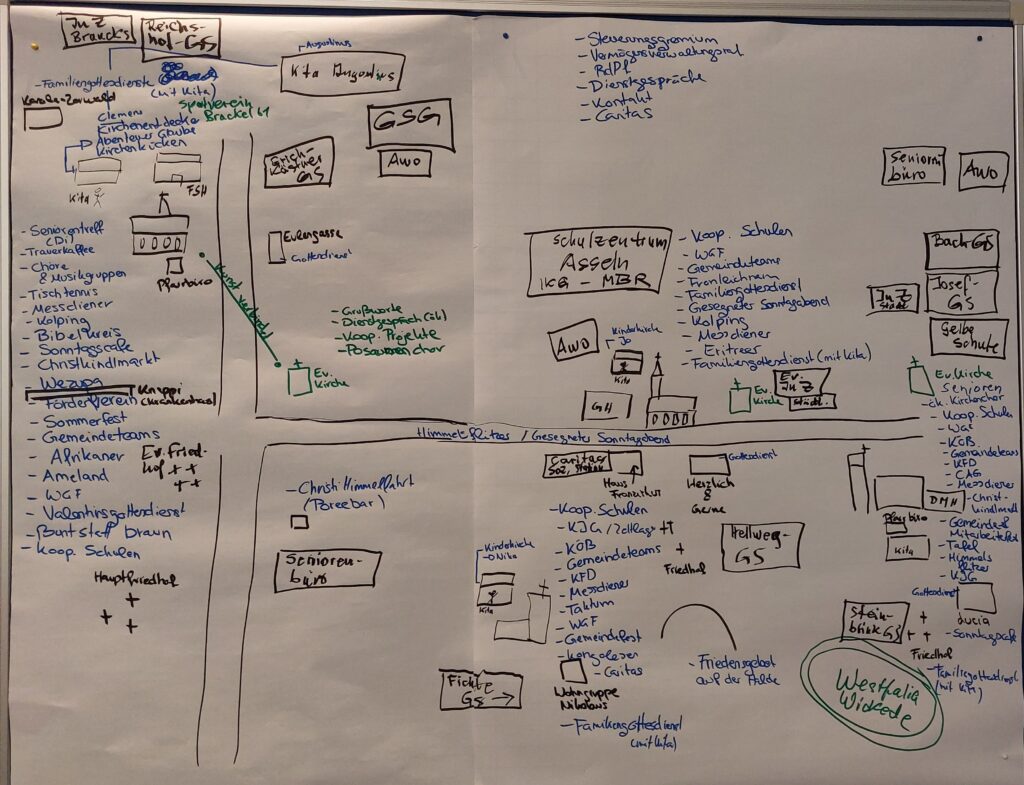 JuZ
Brackel
Reichs-
hof-GS
Augustinus
Kita Augustinus
- Familiengottesdienste
(mit Kita)
Sportverein
Brackel 61
Clemens
Kirchenentdecker
Abenteuer Glaube
Kirchenküken
Kita
FSH
GSG
Awo
Erich-
Kästner
GS
Eulengasse
Gottesdienst
Pfarrbüro
- Seniorentreff
(Di)
- Trauerkaffee
- Chöre
& Musikgruppen
- Tischtennis
- Messdiener
- Kolping
- Bibelkreis
- Sonntagscafe
- Christkindlmarkt
- Förderverein
- Sommerfest
- Gemeindeteams
- Afrikaner
- Ameland
- WGF
- Valentinsgottesdienst
- Buntstatt braun
- Koop. Schulen
Knappi
(Krankenhaus)
Ev. Fried-
hof
Hauptfriedhof
Kunst verbindet
Ev.
Kirche
- Grußworte
- Dienstgespräch (ök)
- Koop. Projekte
- Posaunenchor
- Steuerungsgremium
- Vermögensverwaltungsrat
- RdPf
- Dienstgespräche
- Kontakt
- Caritas
Schulzentrum
Asseln
IKG - MBR
- Koop. Schulen
- WGF
- Gemeindeteams
- Fronleichnam
- Familiengottesdienst
- Gesegneter Sonntagabend
- Kolping
- Messdiener
- Eritreer
- Familiengottesdienst (mit Kita)
Awo
Kinderkirche
Jo
Kita
GH
Ev.
Kirche
Ev.
JuZ
Städt.
Senioren
büro
Awo
Bach GS
Josef-
GS
JuZ
Städt
Gelbe
Schule
Ev. Kirche
Himmelsflitzer / Gesegneter Sonntagabend
- Christi Himmelfahrt
Senioren-
büro
Caritas
Haus
Gottesdienst
Herzlich
&
Gerne
- Koop. Schulen
- KJG
- KÖB
- Gemeindeteams
- KFD
- Messdiener
- Taktum
- WGF
- Gemeindefest
- Kongolesen
- Caritas
Friedhof
Hellweg-
GS
Kinderkirche
Kita
Fichte
GS →
Wohngruppe
Nikolaus
- Familiengottesdienst
(mit Kita)
- Friedensgebet
auf der Halde
Senioren
- ök. Kirchenchor
- Koop. Schulen
- WGF
- KÖB
- Gemeindeteams
- KFD
- CAG
- Messdiener
- Christ-
kindlmarkt
DMH
Pfarrbüro
Kita
- Gemeinde&
Mitarbeiterfest
- Tafel
- Himmels
flitzer
- KJG
Gottesdienst
Lucia
- Sonntagscafe
Stein-
brink GS
Friedhof
- Familiengottesdienst
(mit Kita)
Westfalia
Wickede